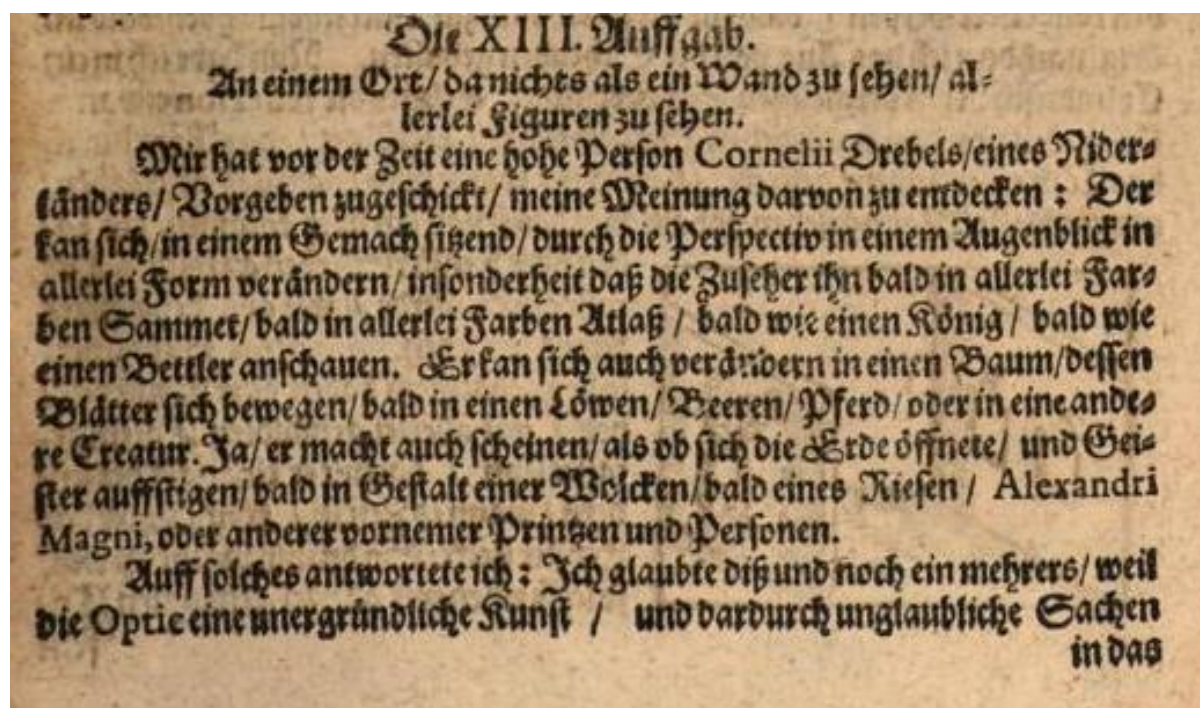 Die XIII. Auffgab.
An einem Ort/ da nichts als ein Wand zu sehen/ al-
lerlei Figuren zu sehen.
Mir hat vor der Zeit eine hohe Person Cornelii Drebels/ eines Nider-
länders/ Vorgeben zugeschickt/ meine Meinung darvon zu entdecken : Der
kan sich/ in einem Gemach sitzend/ durch die Perspectiv in einem Augenblick in
allerlei Form verändern/ insonderheit daß die Zuseher ihn bald in allerlei Far-
ben Sammet/ bald in allerlei Farben Atlaß / bald wie einen König / bald wie
einen Bettler anschauen. Er kan sich auch verändern in einen Baum/ dessen
Blätter sich bewegen/ bald in einen Löwen/ Beeren/ Pferd/ oder in eine ande-
re Creatur. Ja/ er macht auch scheinen/ als ob sich die Erde öffnete/ und Gei-
ster auffstigen/ bald in Gestalt einer Wolcken/ bald eines Riesen / Alexandri
Magni, oder anderer vornemer Printzen und Personen.
Auff solches antwortete ich : Ich glaubte diß und noch ein mehrers/ weil
die Optic eine unergründliche Kunst / und dardurch unglaubliche Sachen
in das